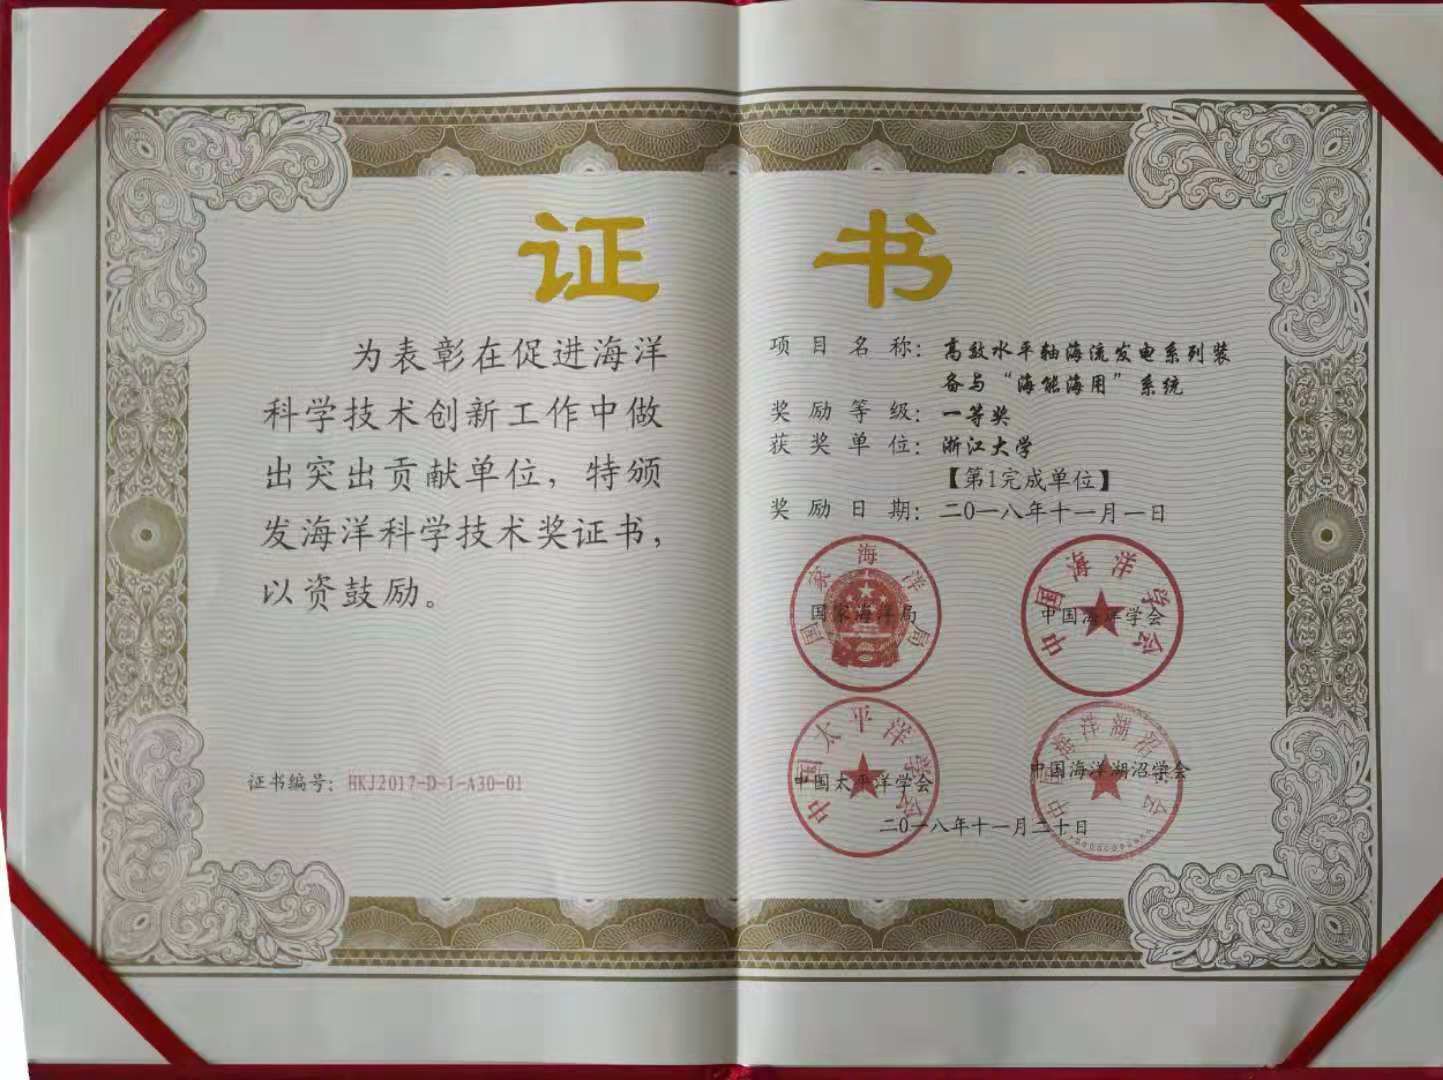 证书
为表彰在促进海洋
科学技术创新工作中做
出突出贡献单位，特颁
发海洋科学技术奖证书，
以资鼓励。
证书编号：HKJ2017-D-1-A30-01
项目名称：高效水平轴海流发电系列装
备与“海能海用”系统
奖励等级：一等奖
获奖单位：浙江大学
【第1完成单位】
奖励日期：二〇一八年十一月一日
国家海洋局
国家海洋局
中国海洋学会
中国海洋学会
中国太平洋学会
中国太平洋学会
中国海洋湖沼学会
中国海洋湖沼学会
二〇一八年十一月二十日